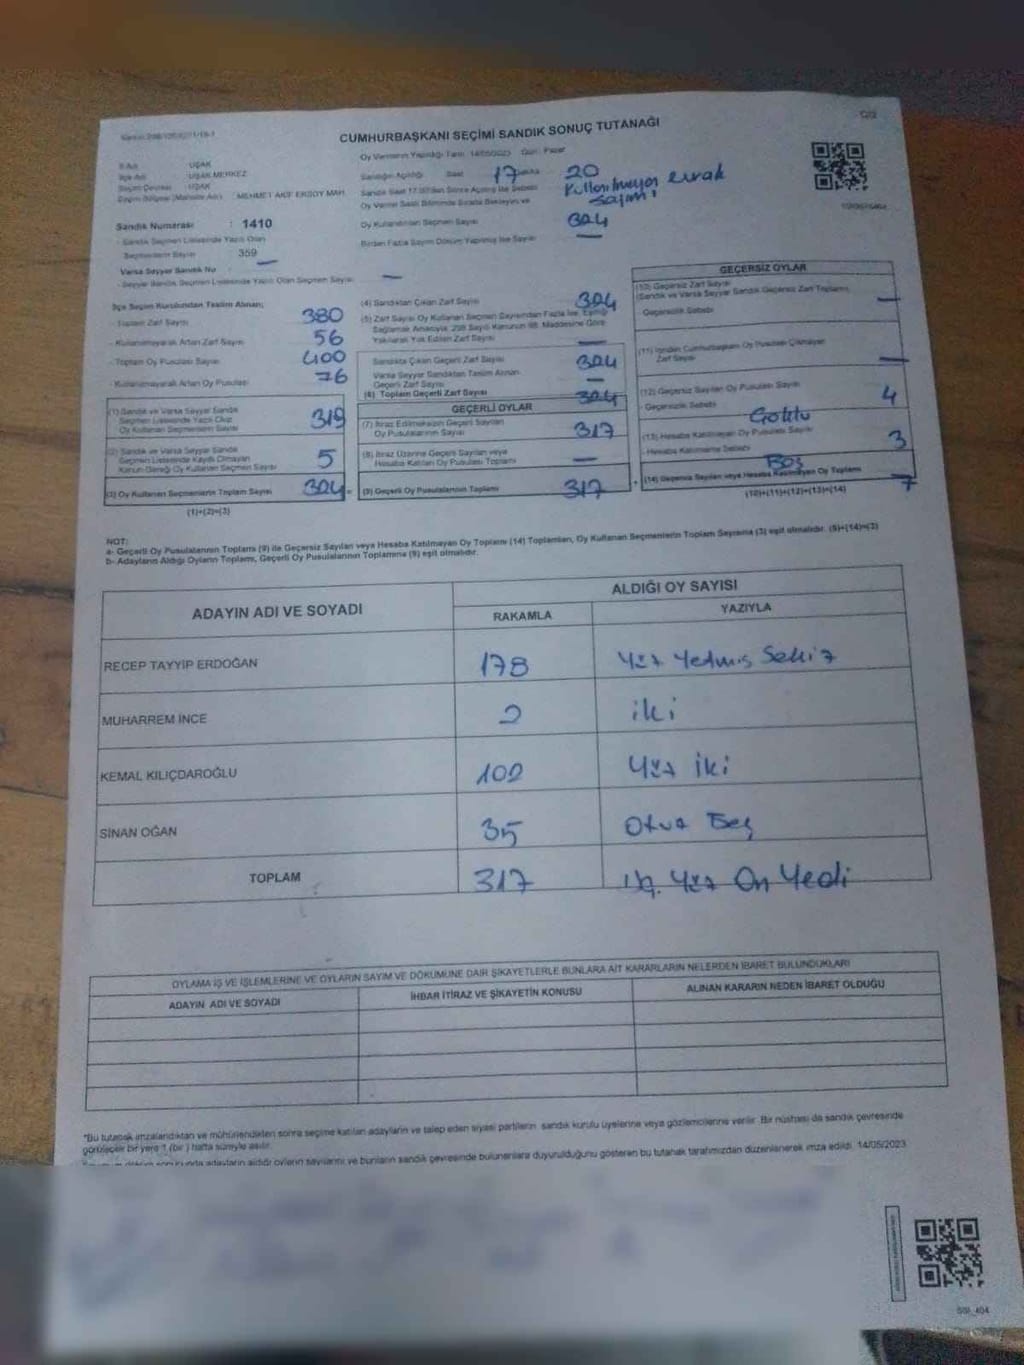 CUMHURBAŞKANI SEÇİMİ SANDIK SONUÇ TUTANAĞI
Oy Vermenin Yapıldığı Tarih: 14/05/2023 Gün: Pazar
İl Adı : UŞAK
İlçe Adı : UŞAK MERKEZ
Seçim Çevresi : UŞAK
Seçim Bölgesi (Mahalle Adı) : MEHMET AKİF ERSOY MAH.
Sandığın Açıldığı Saat 17 Dakika 20
Sandık Saat 17.00'den Sonra Açılmış İse Sebebi Kullanılmayan evrak sayımı
Oy Verme Saati Bitiminde Sırada Bekleyen ve
Oy Kullandırılan Seçmen Sayısı 324
Birden Fazla Sayım Döküm Yapılmış İse Sayısı —
Sandık Numarası : 1410
Sandık Seçmen Listesinde Yazılı Olan
Seçmenlerin Sayısı 359
Varsa Seyyar Sandık No —
Seyyar Sandık Seçmen Listesinde Yazılı Olan Seçmen Sayısı —
İlçe Seçim Kurulundan Teslim Alınan;
Toplam Zarf Sayısı 380
Kullanılmayarak Artan Zarf Sayısı 56
Toplam Oy Pusulası Sayısı 400
Kullanılmayarak Artan Oy Pusulası 76
(1) Sandık ve Varsa Seyyar Sandık
Seçmen Listesinde Yazılı Olup
Oy Kullanan Seçmenlerin Sayısı 319
(2) Sandık ve Varsa Seyyar Sandık
Seçmen Listesinde Kaydı Olmayan
Kanun Gereği Oy Kullanan Seçmen Sayısı 5
(3) Oy Kullanan Seçmenlerin Toplam Sayısı 324
(1)+(2)=(3)
(4) Sandıktan Çıkan Zarf Sayısı 324
(5) Zarf Sayısı Oy Kullanan Seçmen Sayısından Fazla İse, Eşitliği
Sağlamak Amacıyla, 298 Sayılı Kanunun 98. Maddesine Göre
Yakılarak Yok Edilen Zarf Sayısı —
Sandıkta Çıkan Geçerli Zarf Sayısı 324
Varsa Seyyar Sandıktan Teslim Alınan
Geçerli Zarf Sayısı —
(6) Toplam Geçerli Zarf Sayısı 324
GEÇERLİ OYLAR
(7) İtiraz Edilmeksizin Geçerli Sayılan
Oy Pusulalarının Sayısı 317
(8) İtiraz Üzerine Geçerli Sayılan veya
Hesaba Katılan Oy Pusulaları Toplamı —
(9) Geçerli Oy Pusulalarının Toplamı 317
GEÇERSİZ OYLAR
(10) Geçersiz Zarf Sayısı
(Sandık ve Varsa Seyyar Sandık Geçersiz Zarf Toplamı) —
Geçersizlik Sebebi
(11) İçinden Cumhurbaşkanı Oy Pusulası Çıkmayan
Zarf Sayısı —
(12) Geçersiz Sayılan Oy Pusulası Sayısı 4
Geçersizlik Sebebi
(13) Hesaba Katılmayan Oy Pusulası Sayısı 3
Hesaba Katılmama Sebebi Boş
(14) Geçersiz Sayılan veya Hesaba Katılmayan Oy Toplamı 7
(10)+(11)+(12)+(13)=(14)
NOT:
a- Geçerli Oy Pusulalarının Toplamı (9) ile Geçersiz Sayılan veya Hesaba Katılmayan Oy Toplamı (14) Toplamları, Oy Kullanan Seçmenlerin Toplam Sayısına (3) eşit olmalıdır. (9)+(14)=(3)
b- Adayların Aldığı Oyların Toplamı, Geçerli Oy Pusulalarının Toplamına (9) eşit olmalıdır.
ADAYIN ADI VE SOYADI
ALDIĞI OY SAYISI
RAKAMLA YAZIYLA
RECEP TAYYİP ERDOĞAN 178 Yüz Yetmiş Sekiz
MUHARREM İNCE 2 iki
KEMAL KILIÇDAROĞLU 102 Yüz İki
SİNAN OĞAN 35 Otuz Beş
TOPLAM 317 Üç Yüz On Yedi
OYLAMA İŞ VE İŞLEMLERİNE VE OYLARIN SAYIM VE DÖKÜMÜNE DAİR ŞİKAYETLERLE BUNLARA AİT KARARLARIN NELERDEN İBARET BULUNDUKLARI
ADAYIN ADI VE SOYADI İHBAR İTİRAZ VE ŞİKAYETİN KONUSU ALINAN KARARIN NEDEN İBARET OLDUĞU
*Bu tutanak imzalandıktan ve mühürlendikten sonra seçime katılan adayların ve talep eden siyasi partilerin sandık kurulu üyelerine veya gözlemcilerine verilir. Bir nüshası da sandık çevresinde
görülecek bir yere 1 (bir) hafta süreyle asılır.
adayların aldığı oyların sayılarını ve bunların sandık çevresinde bulunanlara duyurulduğunu gösteren bu tutanak tarafımızdan düzenlenerek imza edildi. 14/05/2023